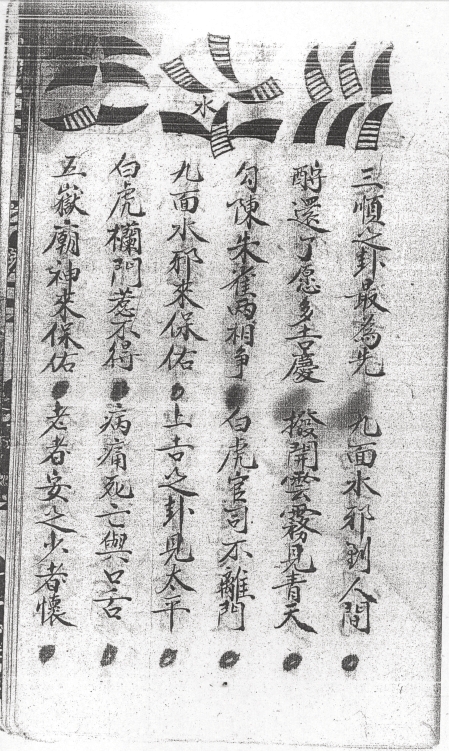 水
三順之卦最為先 九面水邪到人間
酧還了愿多吉慶 撥開雲霧見青天
勾陳朱雀両相争 白虎官司不離門
九面水邪来保佑 上吉之卦見太平
白虎欄門惹不得 病痛死亡與口舌
五嶽廟神来保佑 老者安之少者懷